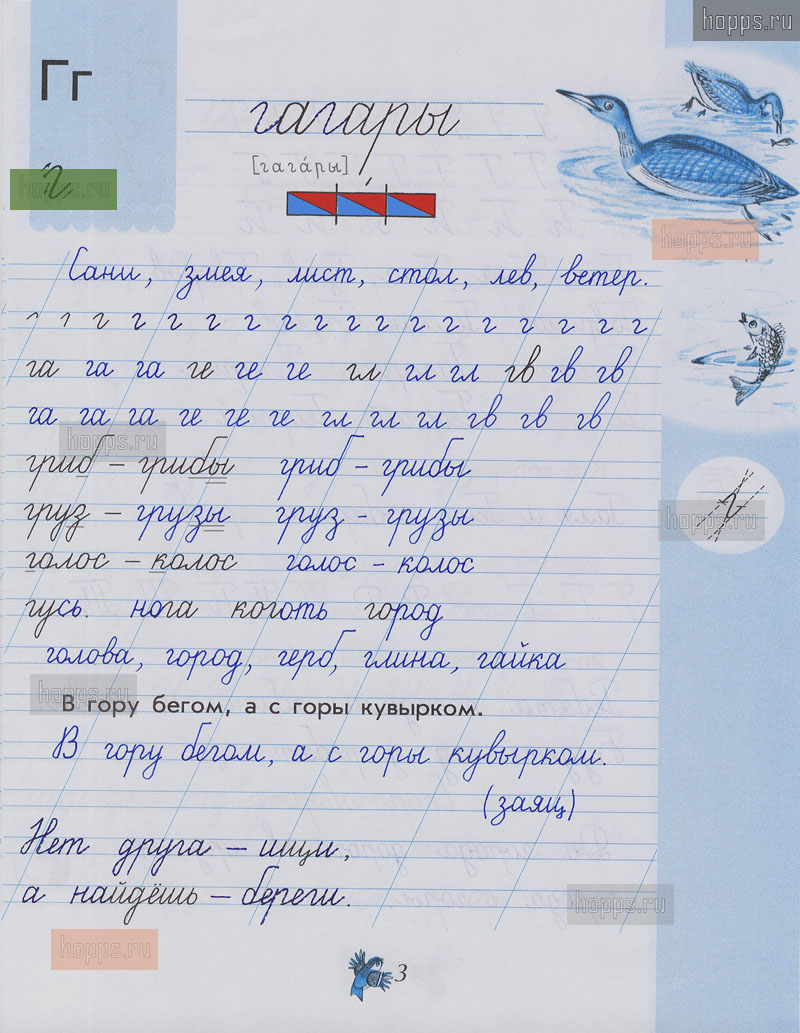 hopps.ru
Гг
гагары
г
hopps.ru
[гага́ры]
hopps.ru
Сани, змея, лист, стол, лев, ветер.
г г г г г г г г г г г г г г г
га га га ге ге ге гл гл гл гв гв гв
га га га ге ге ге гл гл гл гв гв гв
hopps.ru
гриб – грибы гриб – грибы
груз – грузы груз – грузы
г
hopps.ru
голос – колос голос – колос
гусь. нога коготь город
голова, город, герб, глина, гайка
hopps.ru
В гору бегом, а с горы кувырком.
В гору бегом, а с горы кувырком.
(заящ)
Нет друга – ищи,
а найдёшь – береги.
hopps.ru
hopps.ru
3